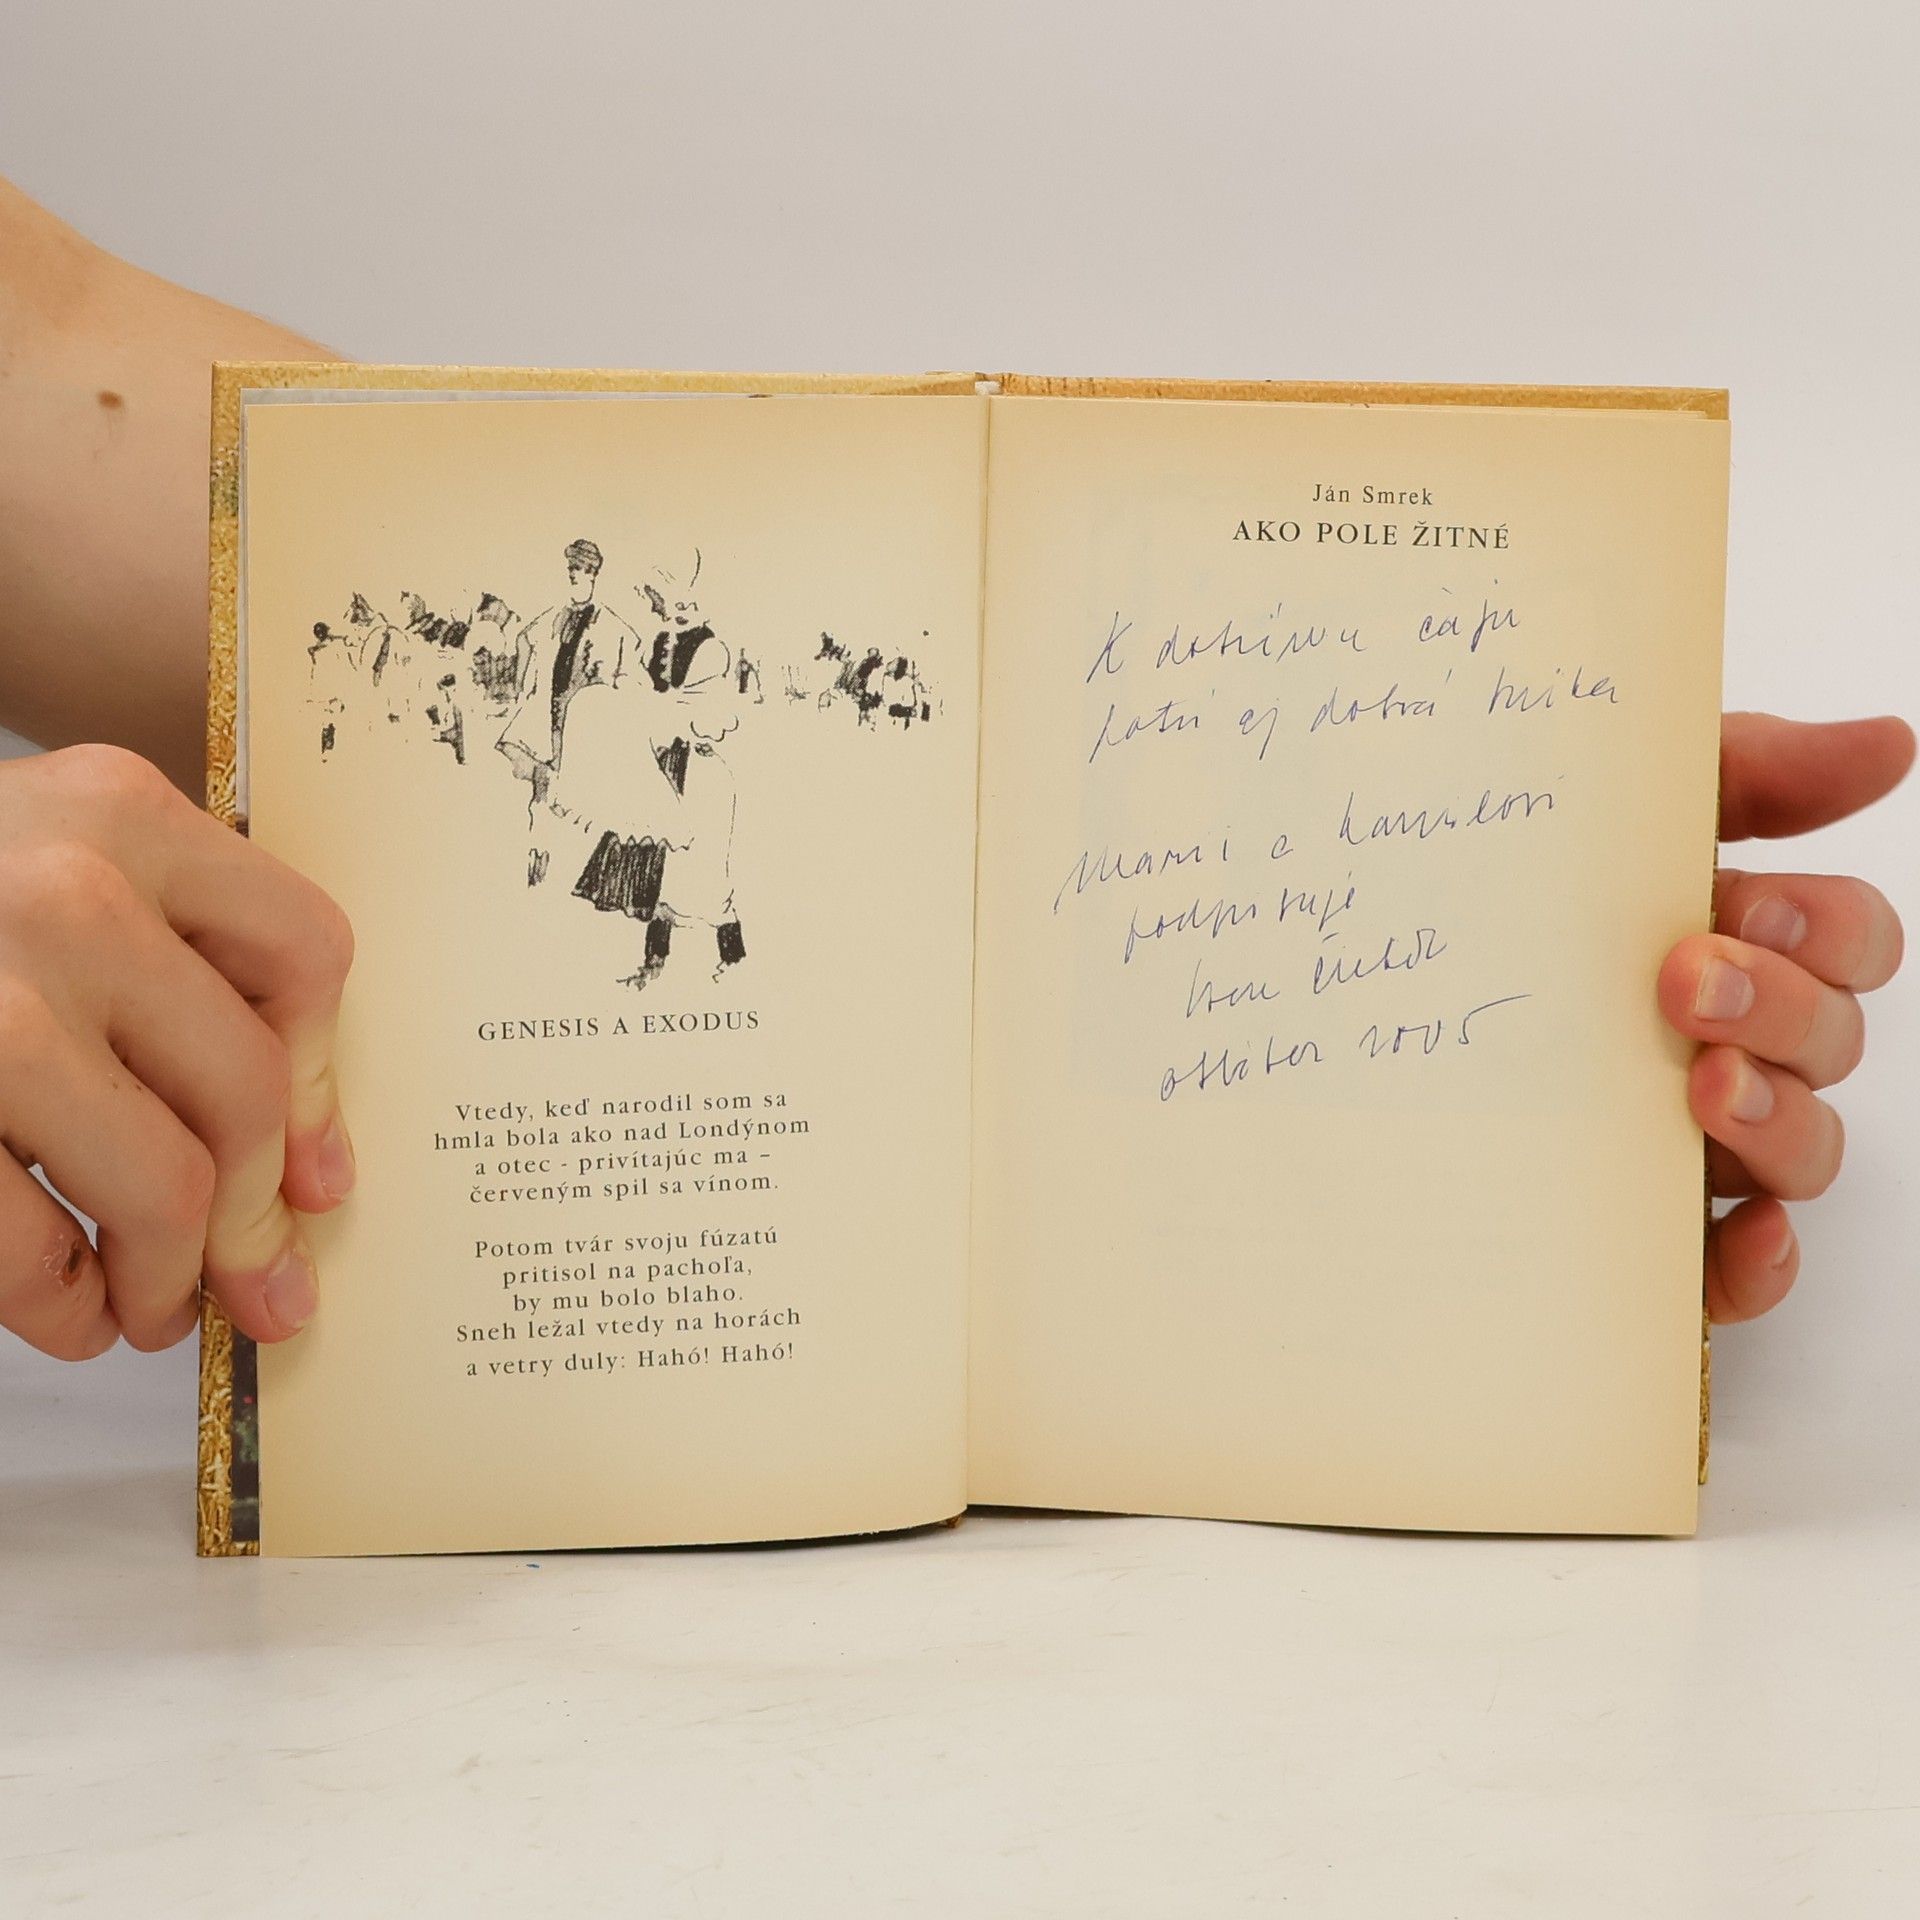 GENESIS A EXODUS
Vtedy, keď narodil som sa
hmla bola ako nad Londýnom
a otec - privítajúc ma –
červeným spil sa vínom.
Potom tvár svoju fúzatú
pritisol na pachoľa,
by mu bolo blaho.
Sneh ležal vtedy na horách
a vetry duly: Hahó! Hahó!
Ján Smrek
AKO POLE ŽITNÉ
K dobrému čaju
patrí aj dobrá knika
a Kamilovi
podpisuje
október 2005